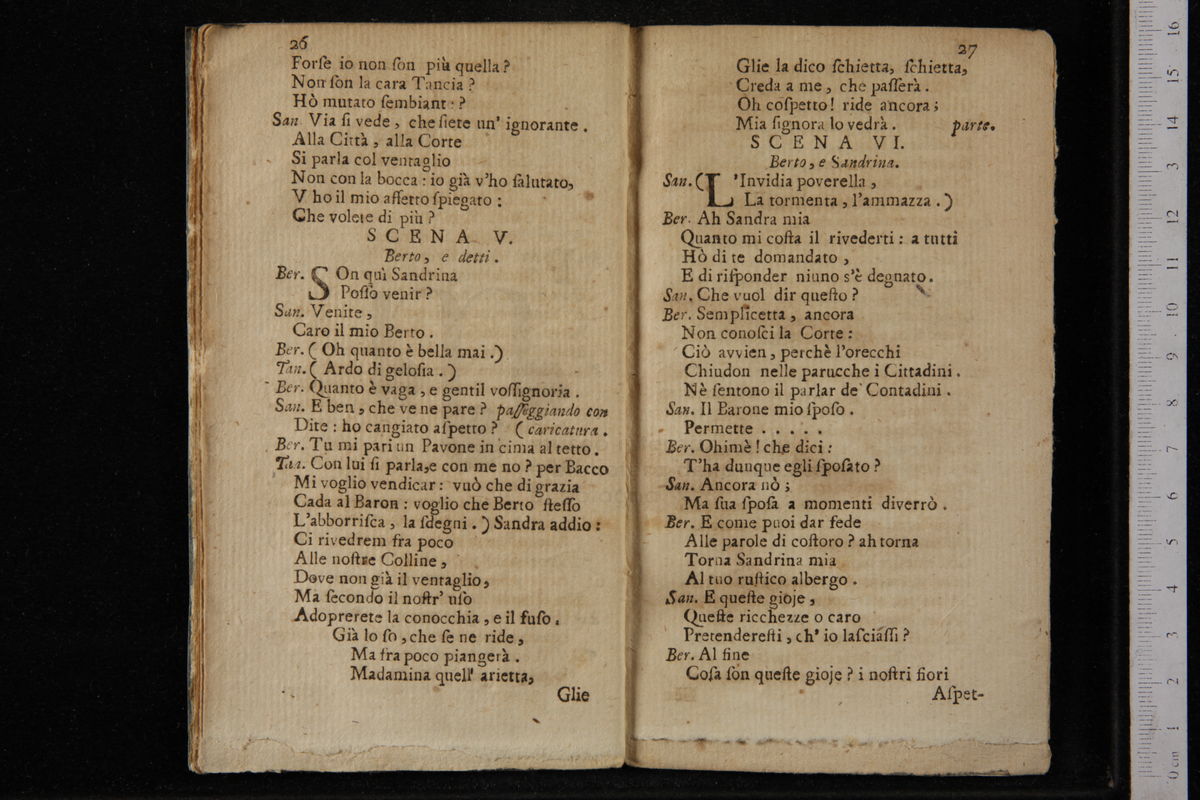 26
Forſe io non ſon più quella?
Non ſon la cara Tancia?
Hò mutato ſembiant:?
San Via ſi vede, che ſiete un' ignorante.
Alla Città, alla Corte
Si parla col ventaglio
Non con la bocca: io già v'ho ſalutato,
V ho il mio affetto ſpiegato:
Che volete di più?
SCENA V.
Berto, e detti.
Ber. SOn quì Sandrina
Poſſo venir?
San. Venite,
Caro il mio Berto.
Ber. (Oh quanto è bella mai.)
Tan. (Ardo di geloſia.)
Ber. Quanto è vaga, e gentil voſſignoria.
San. E ben, che ve ne pare? paſſeggiando con
Dite: ho cangiato aſpetto? (caricatura.
Ber. Tu mi pari un Pavone in cima al tetto.
Tan. Con lui ſi parla, e con me no? per Bacco
Mi voglio vendicar: vuò che di grazia
Cada al Baron: voglio che Berto ſteſſo
L'abborriſca, la ſdegni.) Sandra addio:
Ci rivedrem fra poco
Alle noſtre Colline,
Dove non già il ventaglio,
Ma ſecondo il noſtr' uſo
Adoprerete la conocchia, e il fuſo.
Già lo ſo, che ſe ne ride,
Ma fra poco piangerà.
Madamina quell' arietta,
Glie
27
Glie la dico ſchietta, ſchietta,
Creda a me, che paſſerà.
Oh coſpetto! ride ancora;
Mia ſignora lo vedrà. parte.
SCENA VI.
Berto, e Sandrina.
San. (L'Invidia poverella,
La tormenta, l'ammazza.)
Ber. Ah Sandra mia
Quanto mi coſta il rivederti: a tutti
Hò di te domandato,
E di riſponder niuno s'è degnato.
San. Che vuol dir queſto?
Ber. Semplicetta, ancora
Non conoſci la Corte:
Ciò avvien, perchè l'orecchi
Chiudon nelle parucche i Cittadini.
Nè ſentono il parlar de' Contadini.
San. Il Barone mio ſpoſo.
Permette . . . . .
Ber. Ohimè! che dici:
T'ha dunque egli ſpoſato?
San. Ancora nò;
Ma ſua ſpoſa a momenti diverrò.
Ber. E come puoi dar fede
Alle parole di coſtoro? ah torna
Torna Sandrina mia
Al tuo ruſtico albergo.
San. E queſte gioje,
Queſte ricchezze o caro
Pretendereſti, ch' io laſciáſſi?
Ber. Al fine
Coſa ſon queſte gioje? i noſtri fiori
Aſpet-
0 cm 1 2 3 4 5 6 7 8 9 10 11 12 13 14 15 16